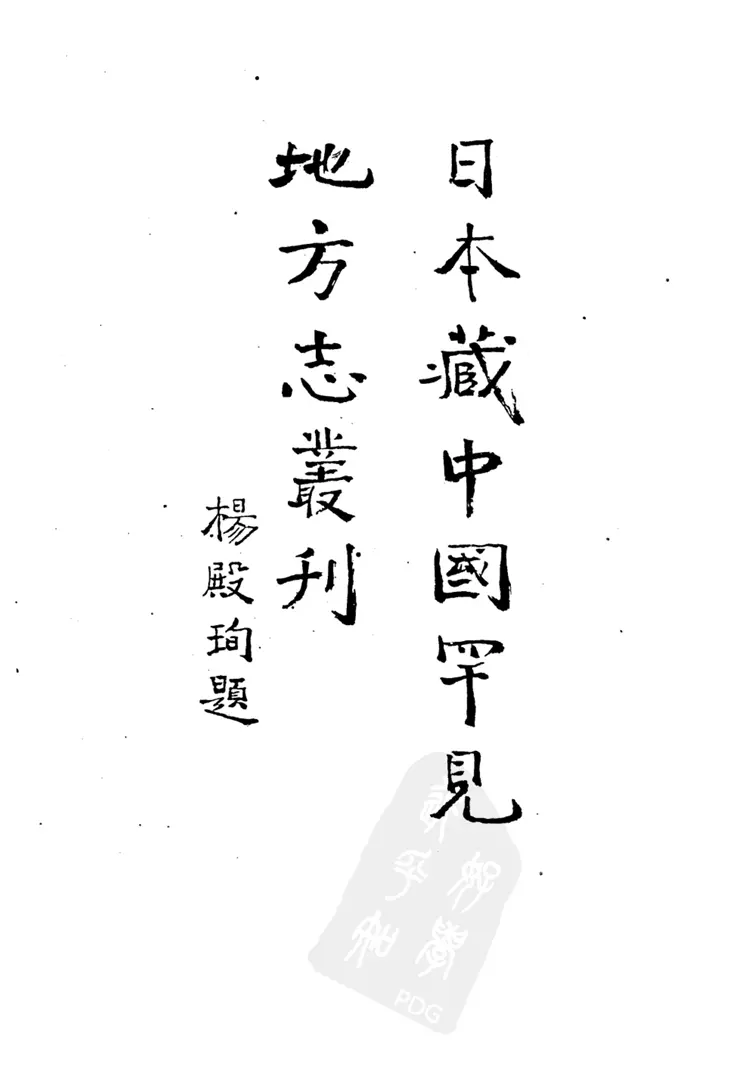 日本藏中國罕見
地方志叢刊
楊殿珣題
PDG